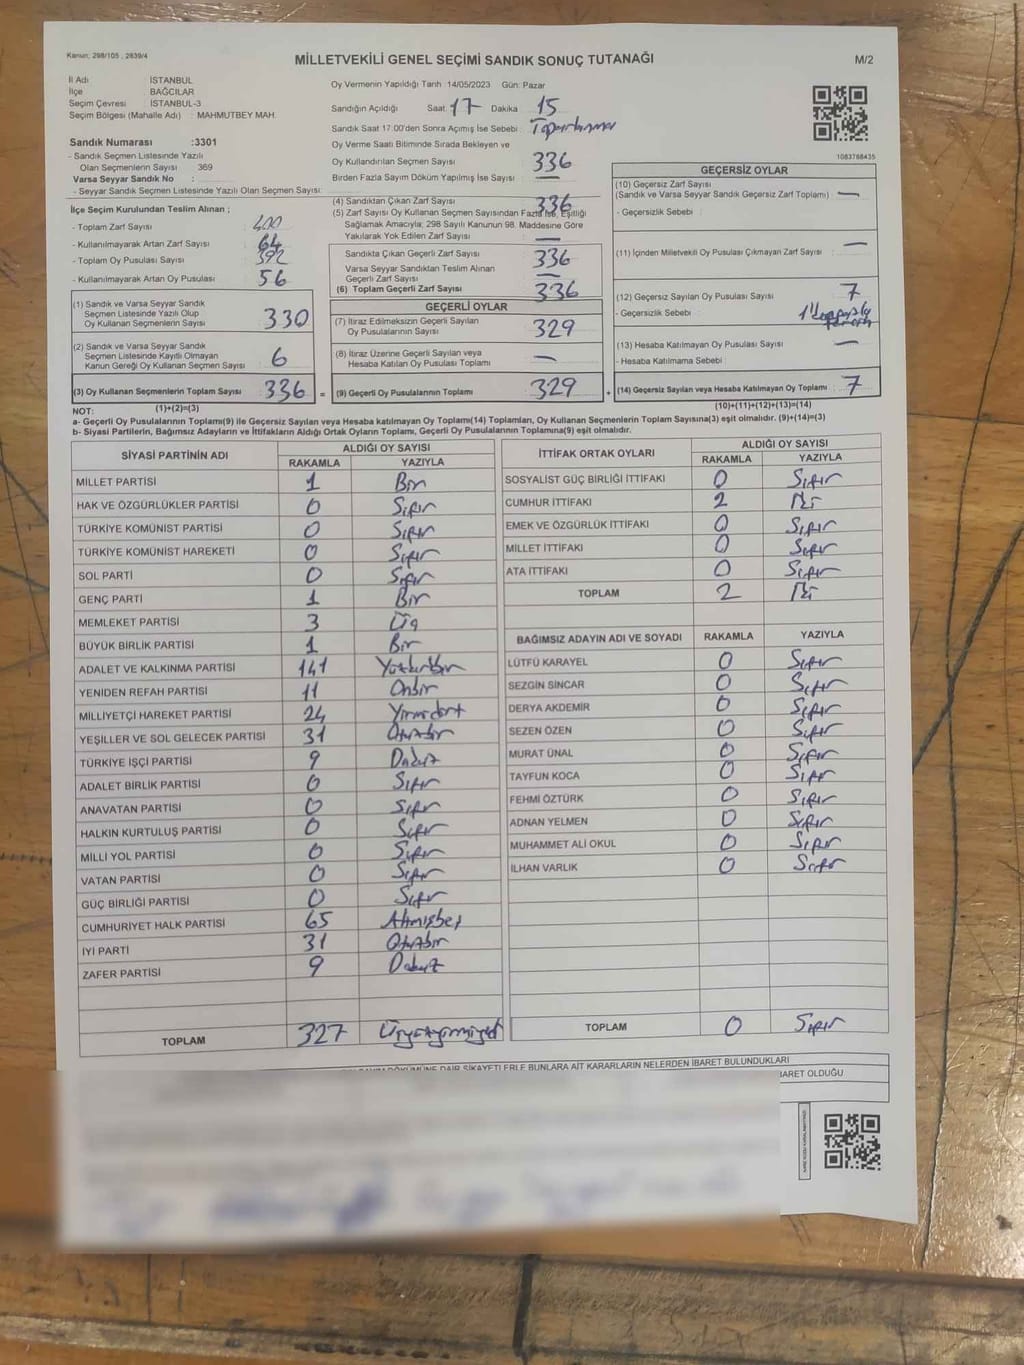 Kanun: 298/105 , 2839/4
MİLLETVEKİLİ GENEL SEÇİMİ SANDIK SONUÇ TUTANAĞI
M/2
İl Adı : İSTANBUL
İlçe : BAĞCILAR
Seçim Çevresi : İSTANBUL-3
Seçim Bölgesi (Mahalle Adı) : MAHMUTBEY MAH.
Sandık Numarası :3301
- Sandık Seçmen Listesinde Yazılı
Olan Seçmenlerin Sayısı : 369
Varsa Seyyar Sandık No :
- Seyyar Sandık Seçmen Listesinde Yazılı Olan Seçmen Sayısı:
İlçe Seçim Kurulundan Teslim Alınan ;
- Toplam Zarf Sayısı : 400
- Kullanılmayarak Artan Zarf Sayısı : 64
- Toplam Oy Pusulası Sayısı : 392
- Kullanılmayarak Artan Oy Pusulası : 56
(1) Sandık ve Varsa Seyyar Sandık
Seçmen Listesinde Yazılı Olup
Oy Kullanan Seçmenlerin Sayısı 330
(2) Sandık ve Varsa Seyyar Sandık
Seçmen Listesinde Kayıtlı Olmayan
Kanun Gereği Oy Kullanan Seçmen Sayısı 6
(3) Oy Kullanan Seçmenlerin Toplam Sayısı 336
(1)+(2)=(3)
Oy Vermenin Yapıldığı Tarih :14/05/2023 Gün: Pazar
Sandığın Açıldığı Saat: 17 Dakika 15
Sandık Saat 17:00'den Sonra Açımış İse Sebebi :
Oy Verme Saati Bitiminde Sırada Bekleyen ve
Oy Kullandırılan Seçmen Sayısı : 336
Birden Fazla Sayım Döküm Yapılmış İse Sayısı : —
(4) Sandıktan Çıkan Zarf Sayısı : 336
(5) Zarf Sayısı Oy Kullanan Seçmen Sayısından Fazla İse, Eşitliği
Sağlamak Amacıyla; 298 Sayılı Kanunun 98. Maddesine Göre
Yakılarak Yok Edilen Zarf Sayısı : —
Sandıkta Çıkan Geçerli Zarf Sayısı : 336
Varsa Seyyar Sandıktan Teslim Alınan
Geçerli Zarf Sayısı : —
(6) Toplam Geçerli Zarf Sayısı : 336
GEÇERLİ OYLAR
(7) İtiraz Edilmeksizin Geçerli Sayılan
Oy Pusulalarının Sayısı : 329
(8) İtiraz Üzerine Geçerli Sayılan veya
Hesaba Katılan Oy Pusulası Toplamı : —
= (9) Geçerli Oy Pusulalarının Toplamı : 329
1083768435
GEÇERSİZ OYLAR
(10) Geçersiz Zarf Sayısı
(Sandık ve Varsa Seyyar Sandık Geçersiz Zarf Toplamı) : —
- Geçersizlik Sebebi :
(11) İçinden Milletvekili Oy Pusulası Çıkmayan Zarf Sayısı : —
(12) Geçersiz Sayılan Oy Pusulası Sayısı : 7
- Geçersizlik Sebebi :
(13) Hesaba Katılmayan Oy Pusulası Sayısı : —
- Hesaba Katılmama Sebebi :
+ (14) Geçersiz Sayılan veya Hesaba Katılmayan Oy Toplamı : 7
(10)+(11)+(12)+(13)=(14)
NOT:
a- Geçerli Oy Pusulalarının Toplamı(9) ile Geçersiz Sayılan veya Hesaba katılmayan Oy Toplamı(14) Toplamları, Oy Kullanan Seçmenlerin Toplam Sayısına(3) eşit olmalıdır. (9)+(14)=(3)
b- Siyasi Partilerin, Bağımsız Adayların ve İttifakların Aldığı Ortak Oyların Toplamı, Geçerli Oy Pusulalarının Toplamına(9) eşit olmalıdır.
SİYASİ PARTİNİN ADI ALDIĞI OY SAYISI
RAKAMLA YAZIYLA
MİLLET PARTİSİ 1 Bir
HAK VE ÖZGÜRLÜKLER PARTİSİ 0 Sıfır
TÜRKİYE KOMÜNİST PARTİSİ 0 Sıfır
TÜRKİYE KOMÜNİST HAREKETİ 0 Sıfır
SOL PARTİ 0 Sıfır
GENÇ PARTİ 1 Bir
MEMLEKET PARTİSİ 3 Üç
BÜYÜK BİRLİK PARTİSİ 1 Bir
ADALET VE KALKINMA PARTİSİ 141 Yüzkırkbir
YENİDEN REFAH PARTİSİ 11 Onbir
MİLLİYETÇİ HAREKET PARTİSİ 24 Yirmidört
YEŞİLLER VE SOL GELECEK PARTİSİ 31 Otuzbir
TÜRKİYE İŞÇİ PARTİSİ 9 Dokuz
ADALET BİRLİK PARTİSİ 0 Sıfır
ANAVATAN PARTİSİ 0 Sıfır
HALKIN KURTULUŞ PARTİSİ 0 Sıfır
MİLLİ YOL PARTİSİ 0 Sıfır
VATAN PARTİSİ 0 Sıfır
GÜÇ BİRLİĞİ PARTİSİ 0 Sıfır
CUMHURİYET HALK PARTİSİ 65 Altmışbeş
İYİ PARTİ 31 Otuzbir
ZAFER PARTİSİ 9 Dokuz
TOPLAM 327 Üçyüzyirmiyedi
İTTİFAK ORTAK OYLARI ALDIĞI OY SAYISI
RAKAMLA YAZIYLA
SOSYALİST GÜÇ BİRLİĞİ İTTİFAKI 0 Sıfır
CUMHUR İTTİFAKI 2 İki
EMEK VE ÖZGÜRLÜK İTTİFAKI 0 Sıfır
MİLLET İTTİFAKI 0 Sıfır
ATA İTTİFAKI 0 Sıfır
TOPLAM 2 İki
BAĞIMSIZ ADAYIN ADI VE SOYADI RAKAMLA YAZIYLA
LÜTFÜ KARAYEL 0 Sıfır
SEZGİN SİNCAR 0 Sıfır
DERYA AKDEMİR 0 Sıfır
SEZEN ÖZEN 0 Sıfır
MURAT ÜNAL 0 Sıfır
TAYFUN KOCA 0 Sıfır
FEHMİ ÖZTÜRK 0 Sıfır
ADNAN YELMEN 0 Sıfır
MUHAMMET ALİ OKUL 0 Sıfır
İLHAN VARLIK 0 Sıfır
TOPLAM 0 Sıfır
DÖKÜMÜNE DAİR ŞİKAYETLERLE BUNLARA AİT KARARLARIN NELERDEN İBARET BULUNDUKLARI
İBARET OLDUĞU